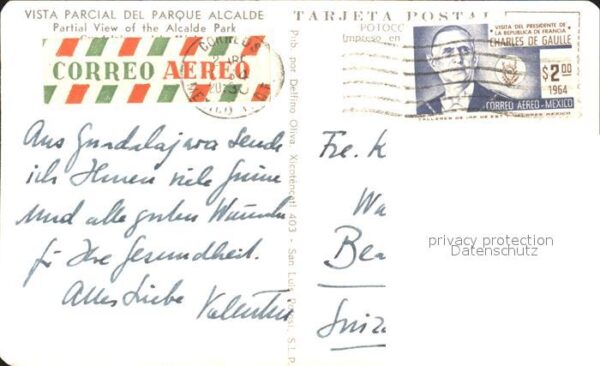 VISTA PARCIAL DEL PARQUE ALCALDE
Partial View of the Alcalde Park
CORREO AEREO
CORREOS
Aus Guadalajara sende
ich Ihnen viele Grüsse
und alle guten Wünsche
für Ihre Gesundheit.
Alles Liebe Valentin
Pub. por Delfino Oliva. Xicoténcatl 403 - San Luis Potosí, S.L.P.
TARJETA POSTAL
FOTOCO
Impreso en
VISITA DEL PRESIDENTE DE
LA REPUBLICA DE FRANCIA
CHARLES DE GAULLE
$2.00
1964
CORREO AEREO-MEXICO
Fre. K
Wa
Bea
Suiza
privacy protection
Datenschutz